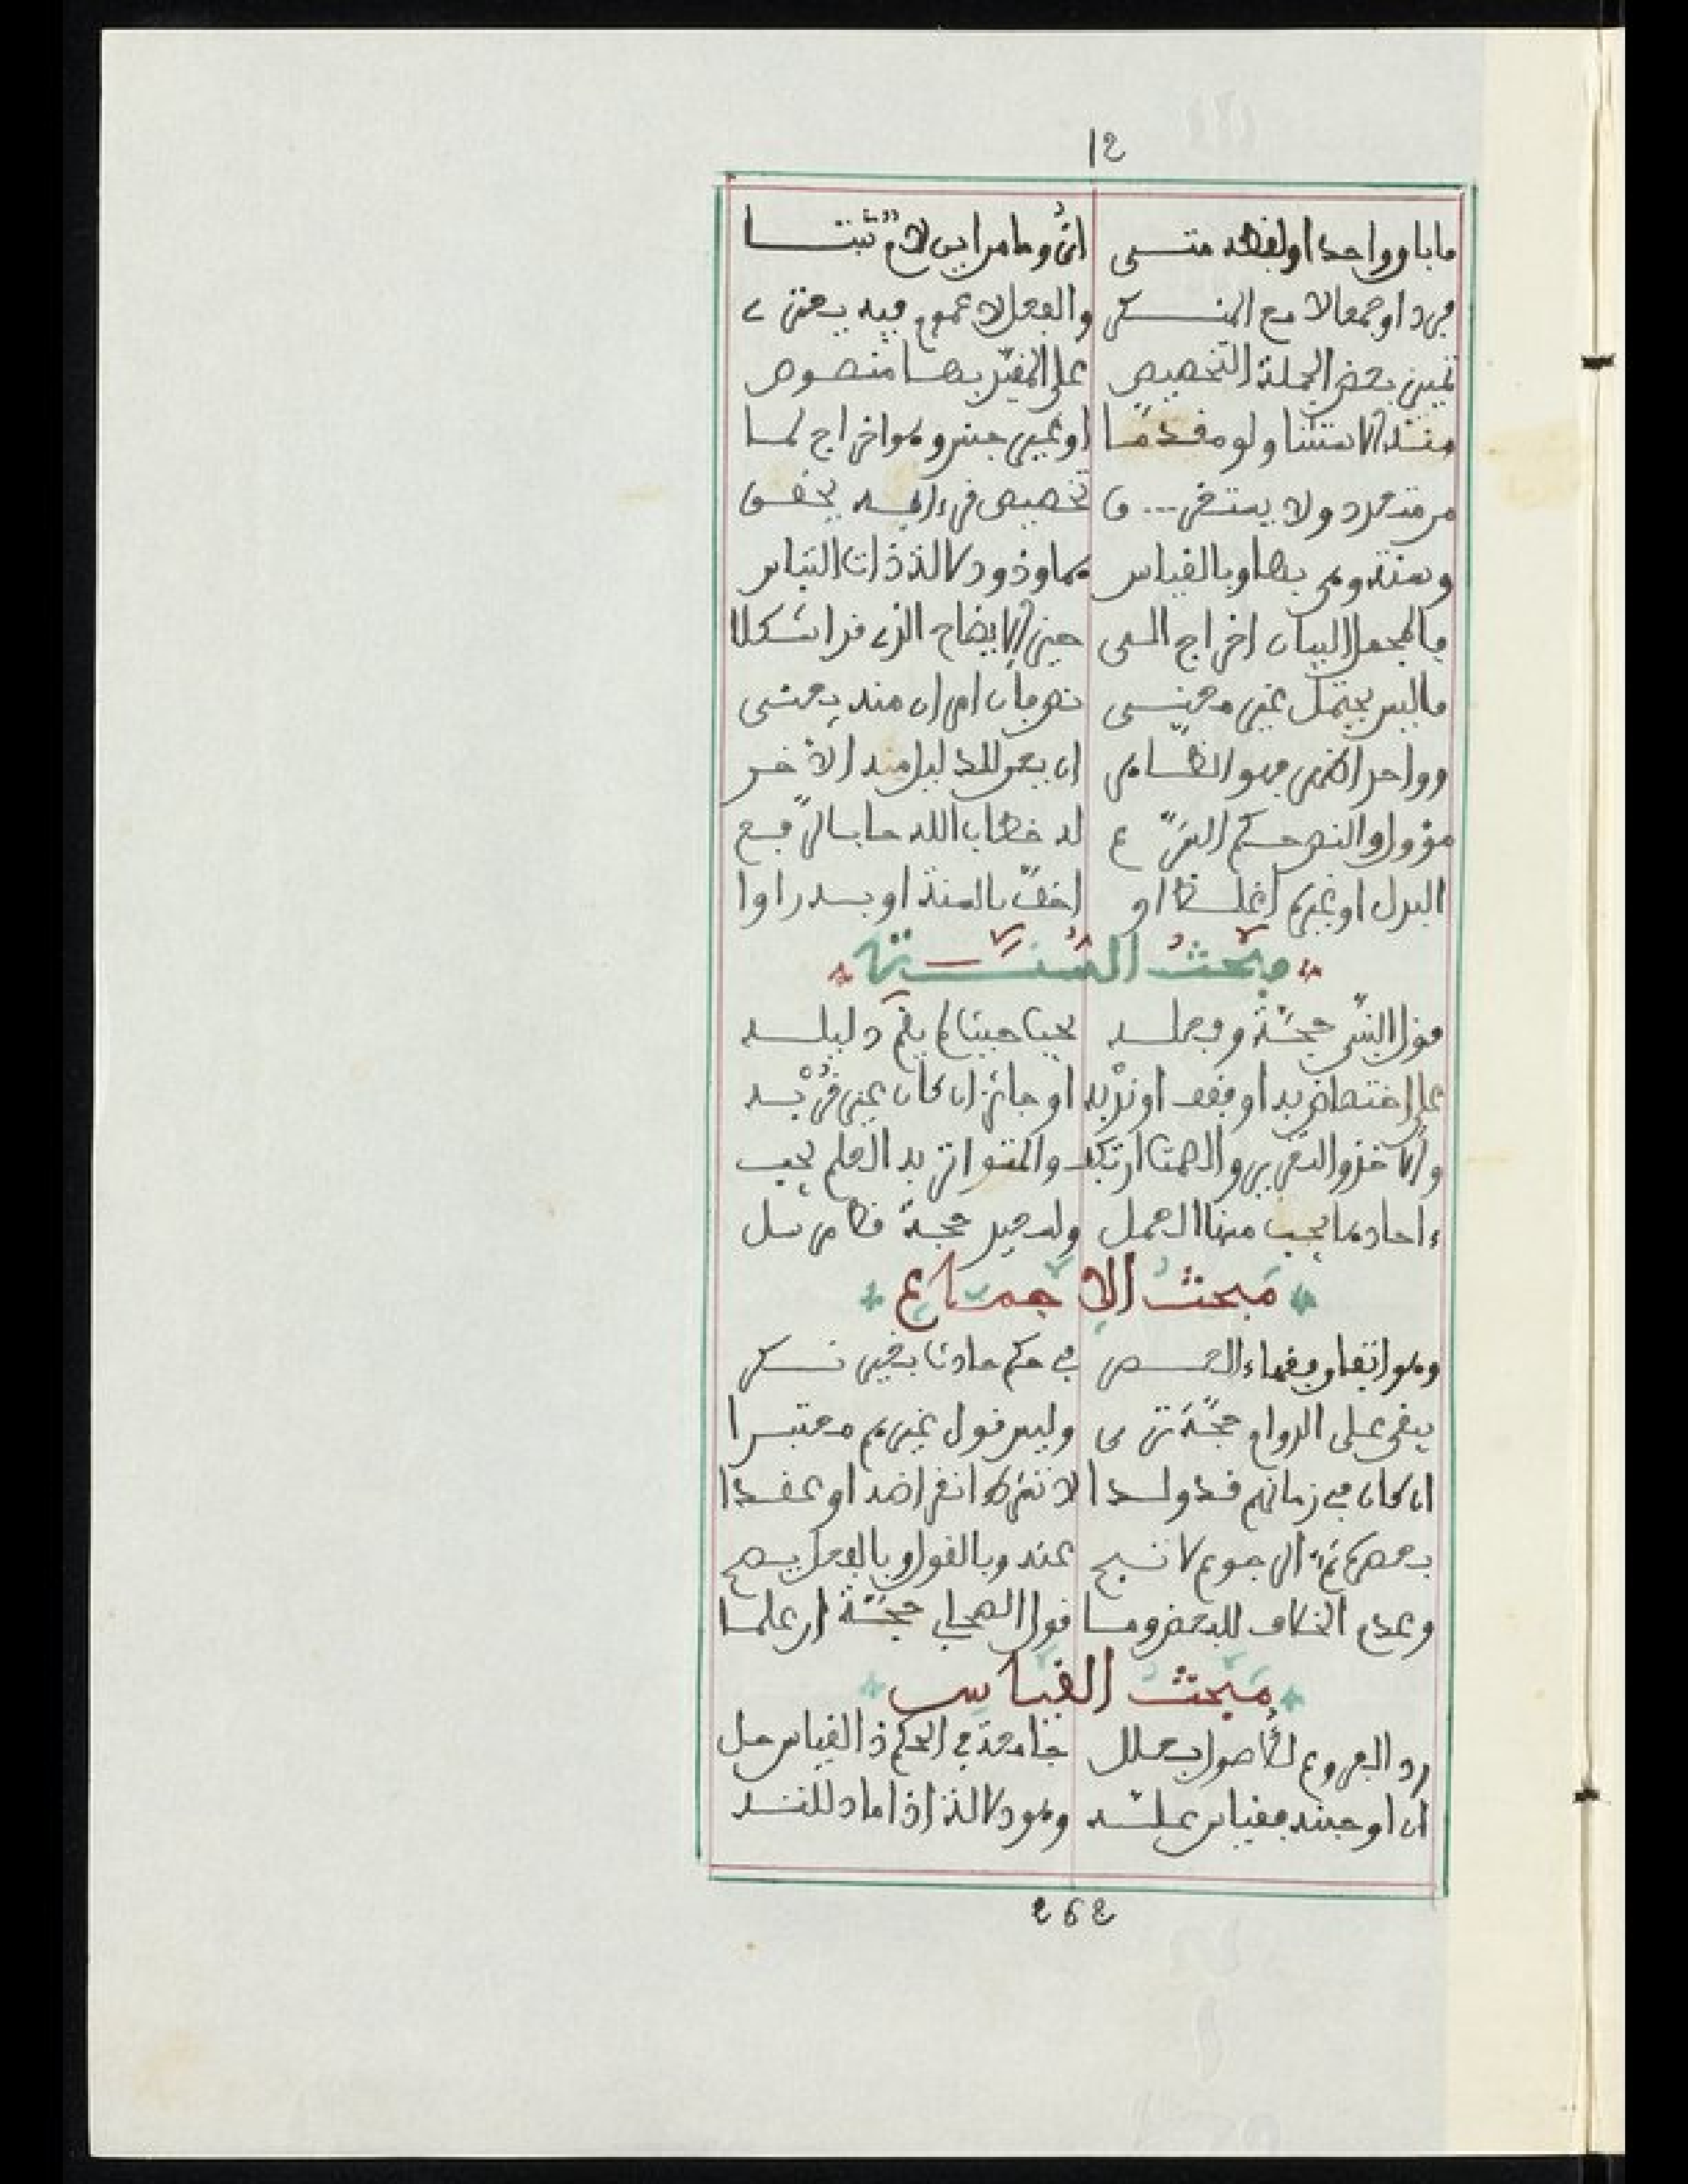 12
ما باو واحدا او لفظه متى انى وما من اين لام ثبتا
فردا او جمعا لا مع المنكر والفعل لا عموم فيه يعتري
تميز بعض الجملة التخصيص على المغير بها منصوص
منه الاستثنا ولو مقدما او غير جنس وهو اخراج لما
من متعدد ولا يستغرق تخصيص فرءانه يحقق
وسنة وهى بها وبالقياس هما وذو دلالة ذات التباس
فالمجمل البيان اخراج المسى حيز الايضاح الذي قد اشكلا
ما ليس يحتمل غير معنى نص فان امران منه يعنى
وواحد اظهر فهو الظاهر ان يعن للدليل منه الاخر
مؤول والنص حكم الشرع له خطاب الله جا بالرفع
البدل او غيرهم اغلظ او اخف بالسنة او به راوا
مبحث السنة
قول النبي حجة وفعله يجينا حيث لم يقم دليله
على اختصاص به او وقف او ندب او جائز ان كان غير قربه
والاخذ والتقرير والصمت ارتكب والمتواتر به العلم يجب
ءاحاد ما يجب منها العمل وله صير حجة مرسل
مبحث الاجماع
وهو اتفاق فقهاء العصر في حكم حادث بغير نكر
يبقى على الدوام حجة ترى وليس قول غيرهم معتبرا
ان كان في زمانهم قد ولدا لا تشترط انقراضه او عقدا
بعصرهم ثم الرجوع لا تبح عنه وبالقول وبالفعل يصح
وعدم الخلاف للبعض وما قول الصحابي حجة ان علما
مبحث القياس
رد الفروع للاصول بعلل جامعة في الحكم ذ القياس حل
ان اوجبته فقياس علة وهو دلالة اذا ما دلت
262